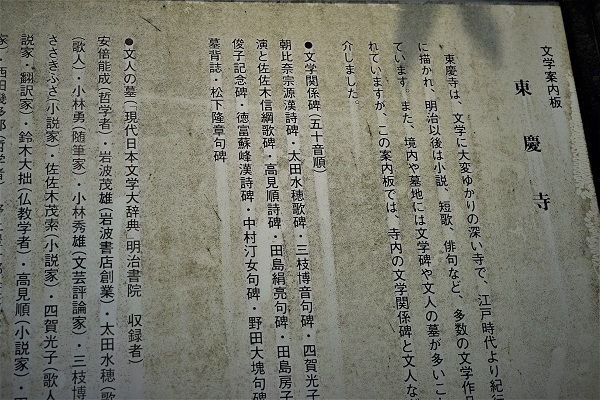 文学案内板
東慶寺
東慶寺は、文学に大変ゆかりの深い寺で、江戸時代より紀行
に描かれ、明治以後は小説、短歌、俳句など、多数の文学作品
ています。また、境内や墓地には文学碑や文人の墓が多いこ
れていますが、この案内板では、寺内の文学関係碑と文人な
介しました。
●文学関係碑(五十音順)
朝比奈宗源漢詩碑・太田水穂歌碑・三枝博音句碑・四賀光子
演と佐佐木信綱歌碑・高見順詩碑・田島絹亮句碑・田島房子
俊子記念碑・徳富蘇峰漢詩碑・中村汀女句碑・野田大塊句碑
墓背誌・松下隆章句碑
●文人の墓(「現代日本文学大辞典」明治書院 収録者)
安倍能成(哲学者)・岩波茂雄(岩波書店創業)・太田水穂(歌
(歌人)・小林勇(随筆家)・小林秀雄(文芸評論家)・三枝博
ささきふさ(小説家)・佐佐木茂索(小説家)・四賀光子(歌人
説家・翻訳家)・鈴木大拙(仏教学者)・高見順(小説家)・田
家)・西田幾多郎(哲学者)